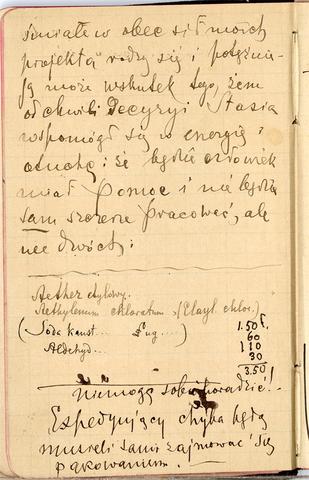 śmiałe w obec sił moich
projekta rodzą się i potężnie-
ją może wskutek tego, żem
od chwili Decyzyi Stasia
wspomógł się w energię i
otuchę; że będzie człowiek
miał pomoc i nie będzie
sam szczerze pracować, ale
nee dwóch;
Aether etylowy.
Aethylenum chloratum s(Elayl. chlor.)
(Soda kaust... ug....)
Aldehyd...
1.50 f.
60
110
30
3.50
niemogą sobie poradzić!
Expedyujący chyba będą
musieli sami zajmować się
pakowaniem.